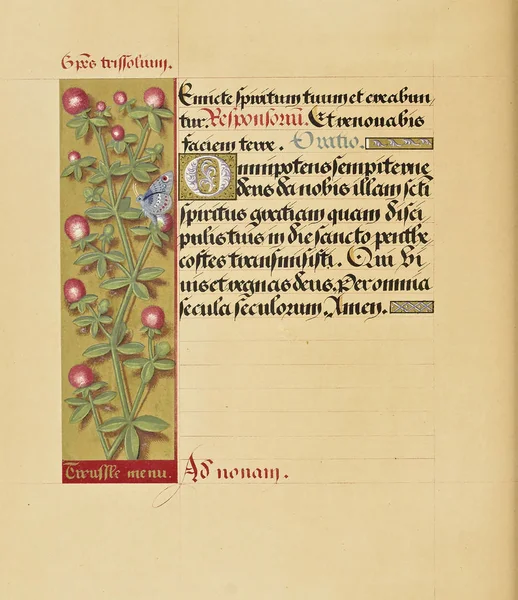 Sp̃es triffolium.
Emicte spiritum tuum et creabun
tur. Responsoriũ. Et renouabis
faciem terre. Oratio.
Omnipotens sempiterne
deus da nobis illam scti
spiritus gratiam quam disci
pulis tuis in die sancto penthe
costes transmisisti. Qui vi
uis et regnas deus. Per omnia
secula seculorum. Amen.
Truffle menu. Ad nonam.